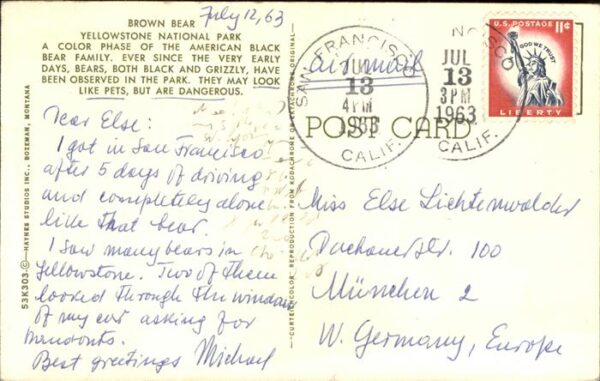 July 12, 63
BROWN BEAR
YELLOWSTONE NATIONAL PARK
A COLOR PHASE OF THE AMERICAN BLACK
BEAR FAMILY. EVER SINCE THE VERY EARLY
DAYS, BEARS, BOTH BLACK AND GRIZZLY, HAVE
BEEN OBSERVED IN THE PARK. THEY MAY LOOK
LIKE PETS, BUT ARE DANGEROUS.
Dear Else:
I got in San Francisco
after 5 days of driving
and completely alone
like that bear.
I saw many bears in
Yellowstone. Two of them
looked through the window
of my car asking for
handouts.
Best greetings Michael
53K303 © — HAYNES STUDIOS INC., BOZEMAN, MONTANA
REPRODUCTION FROM KODACHROME OR EKTACHROME ORIGINAL
POST CARD
air mail
SAN FRANCISCO
JUL
13
4 PM
1963
CALIF.
JUL
13
3 PM
1963
CALIF.
U.S. POSTAGE 11¢
IN GOD WE TRUST
LIBERTY
Miss Else Lichtenwalder
Dachauerstr. 100
München 2
W. Germany, Europe